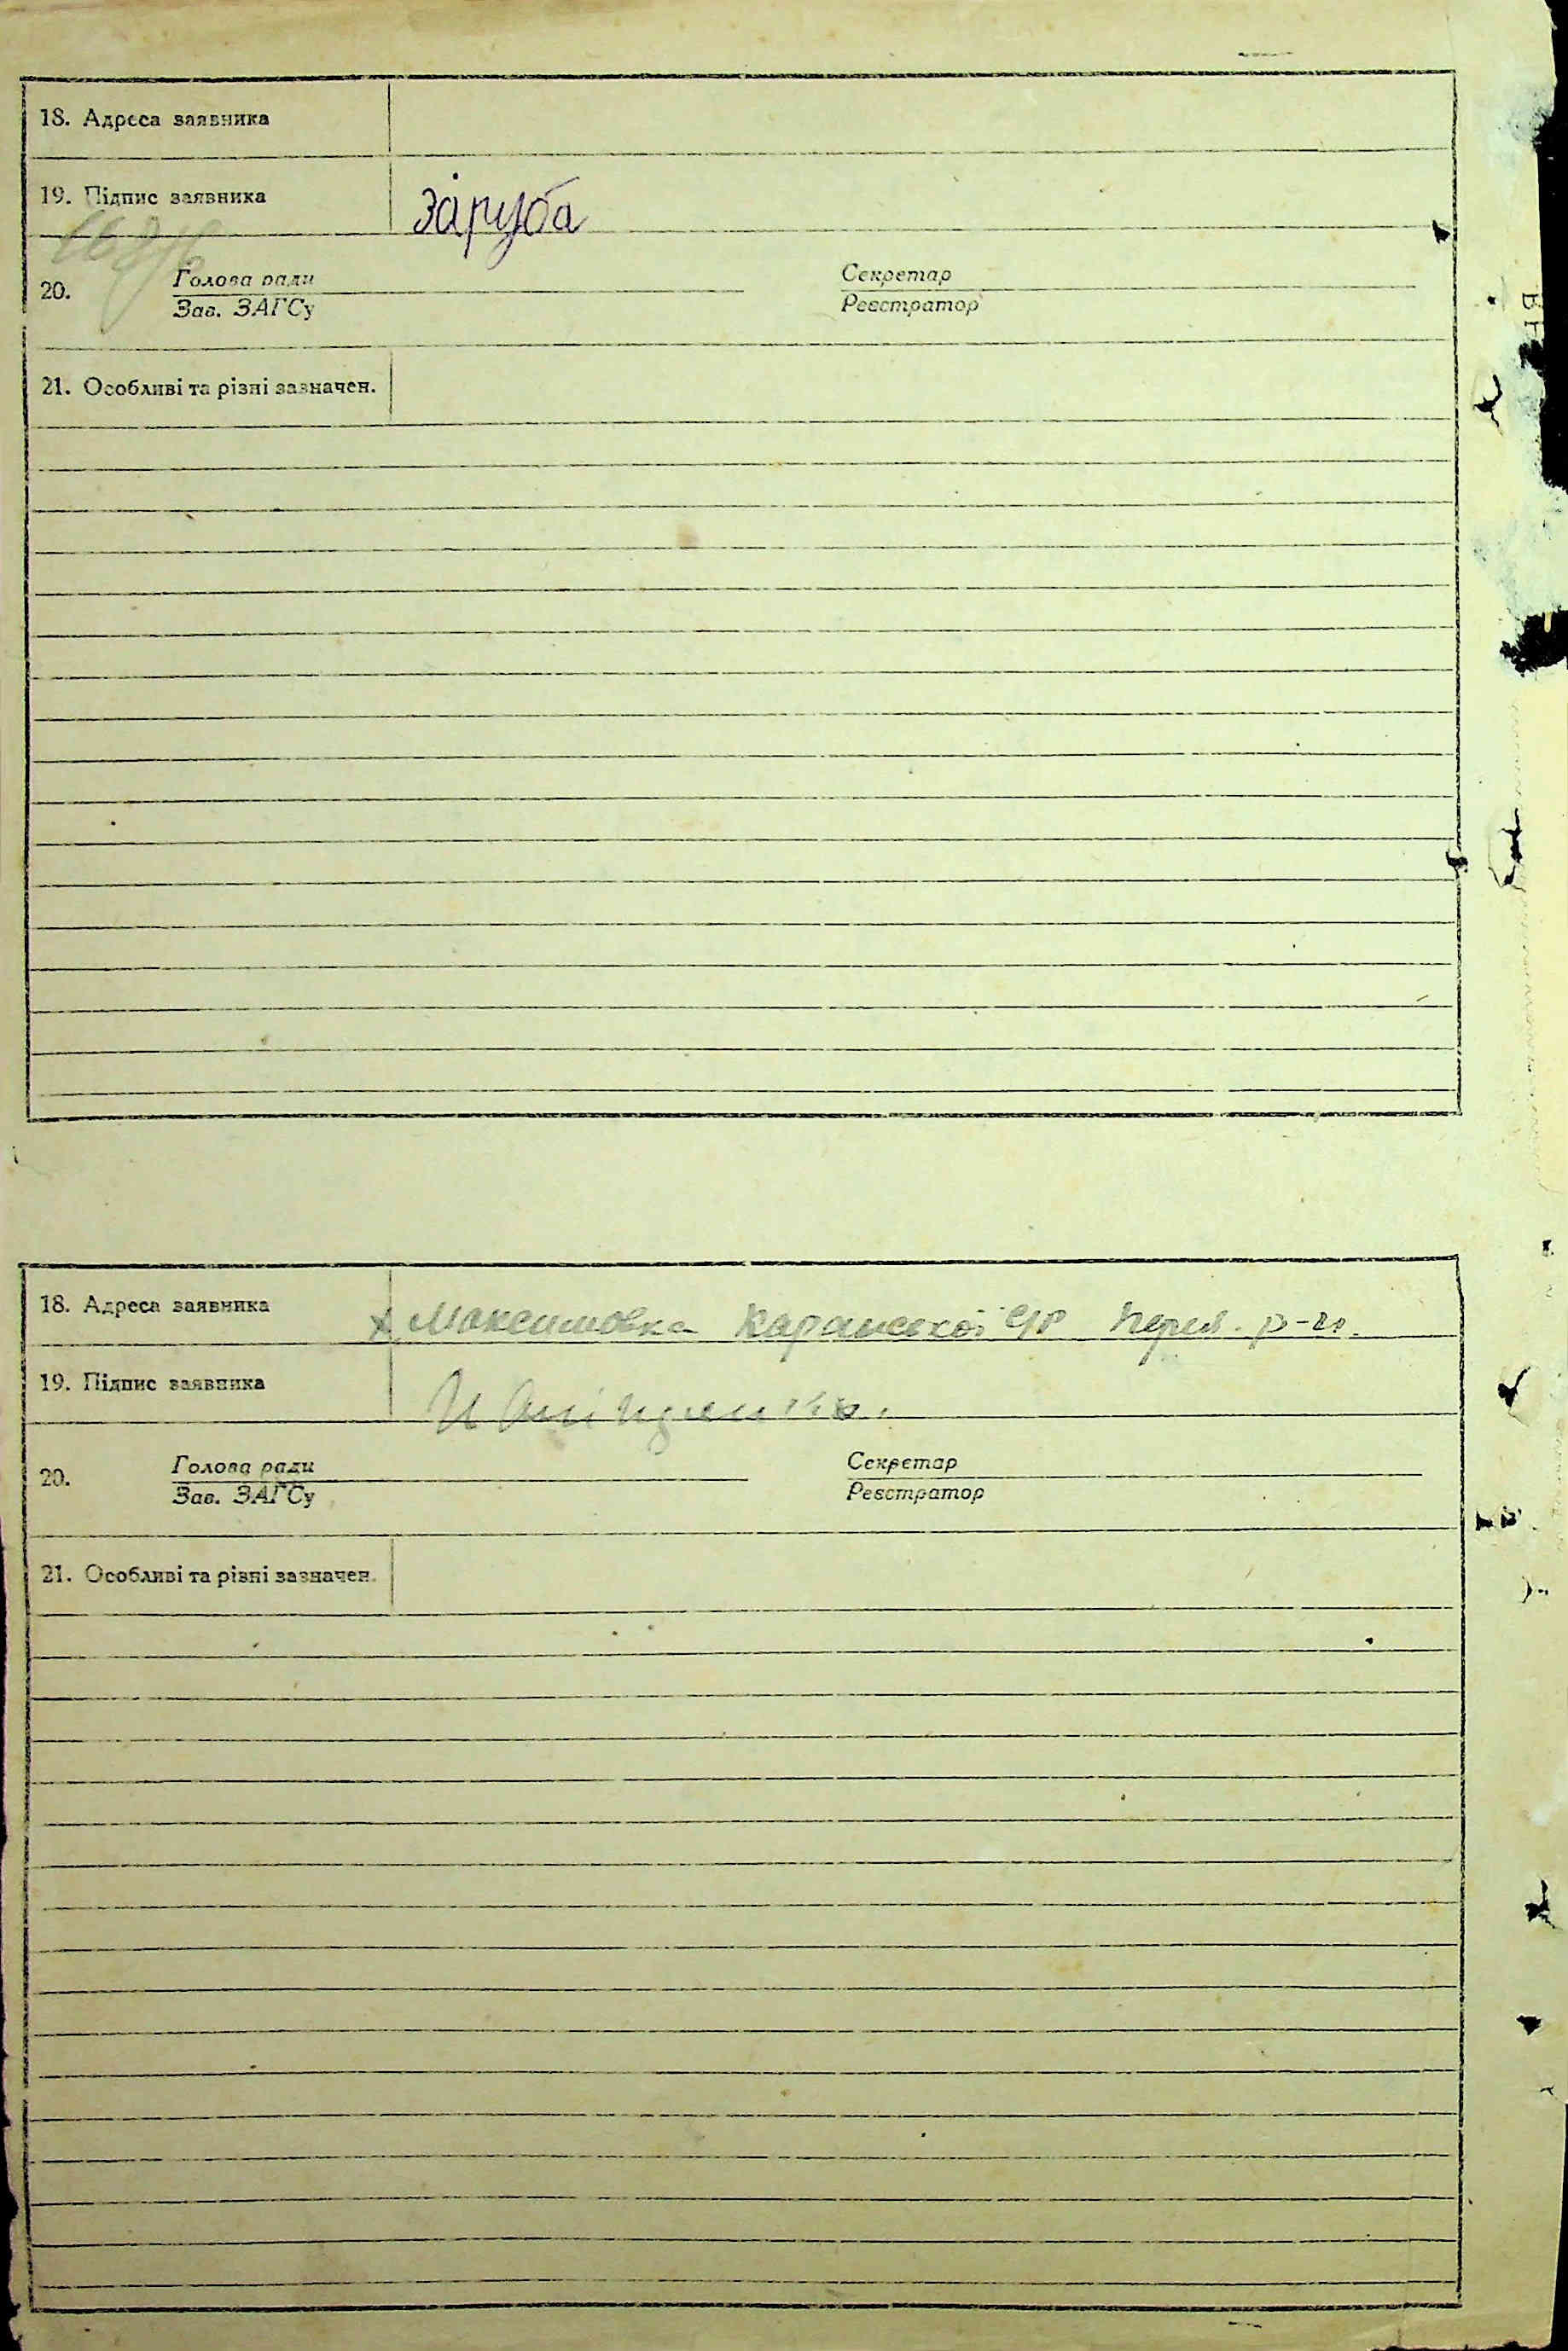 18. Адреса заявника
19. Підпис заявника Заруба
20. Голова ради Секретар
Зав. ЗАГСу Реєстратор
21. Особливі та різні зазначен.
18. Адреса заявника х. Максимовка Каранської с/р Перея. р-ну.
19. Підпис заявника
20. Голова ради Секретар
Зав. ЗАГСу Реєстратор
21. Особливі та різні зазначен.